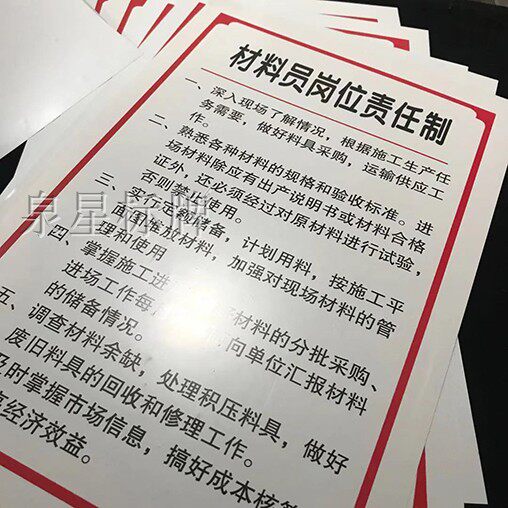 材料员岗位责任制
一、深入现场了解情况，根据施工生产任
务需要，做好料具采购，运输供应工
作。
二、熟悉各种材料的规格和验收标准。进
场材料除应有出产说明书或材料合格
证外，还必须经过对原材料进行试验，
否则禁止使用。
三、实行 备，计划用料，按施工平
面 放材料，加强对现场材料的管
理和使用
四、掌握施工进 材料的分批采购、
进场工作每 向单位汇报材料
的储备情况。
五、调查材料余缺，处理积压料具，做好
废旧料具的回收和修理工作。
时掌握市场信息，搞好成本核
经济效益。
泉星标牌